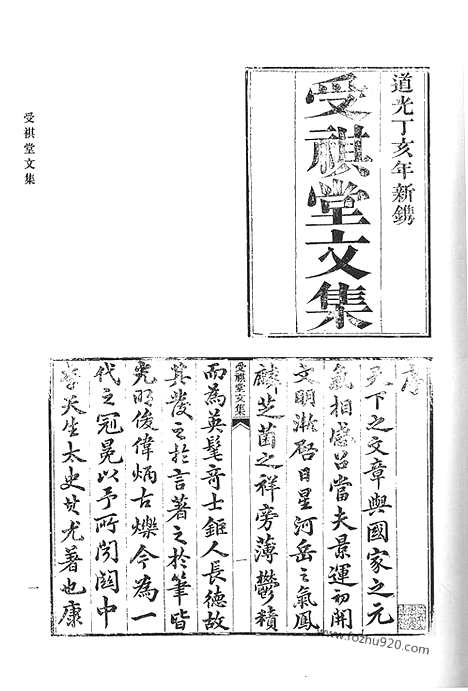 道光丁亥年新鐫
受祺堂文集
受祺堂文集
序
天下之文章與國家之元
氣相盛召當夫景運初開
文明漸啓日星河岳之氣鳳
麟芝菌之祥旁薄鬱積
受祺堂文集
一
而為英髦奇士鉅人長德故
其發之於言著之於筆皆
光明俊偉炳古爍今為一
代之冠冕以予所聞關中
李天生太史其尤著也康
一
www.fozhu920.com